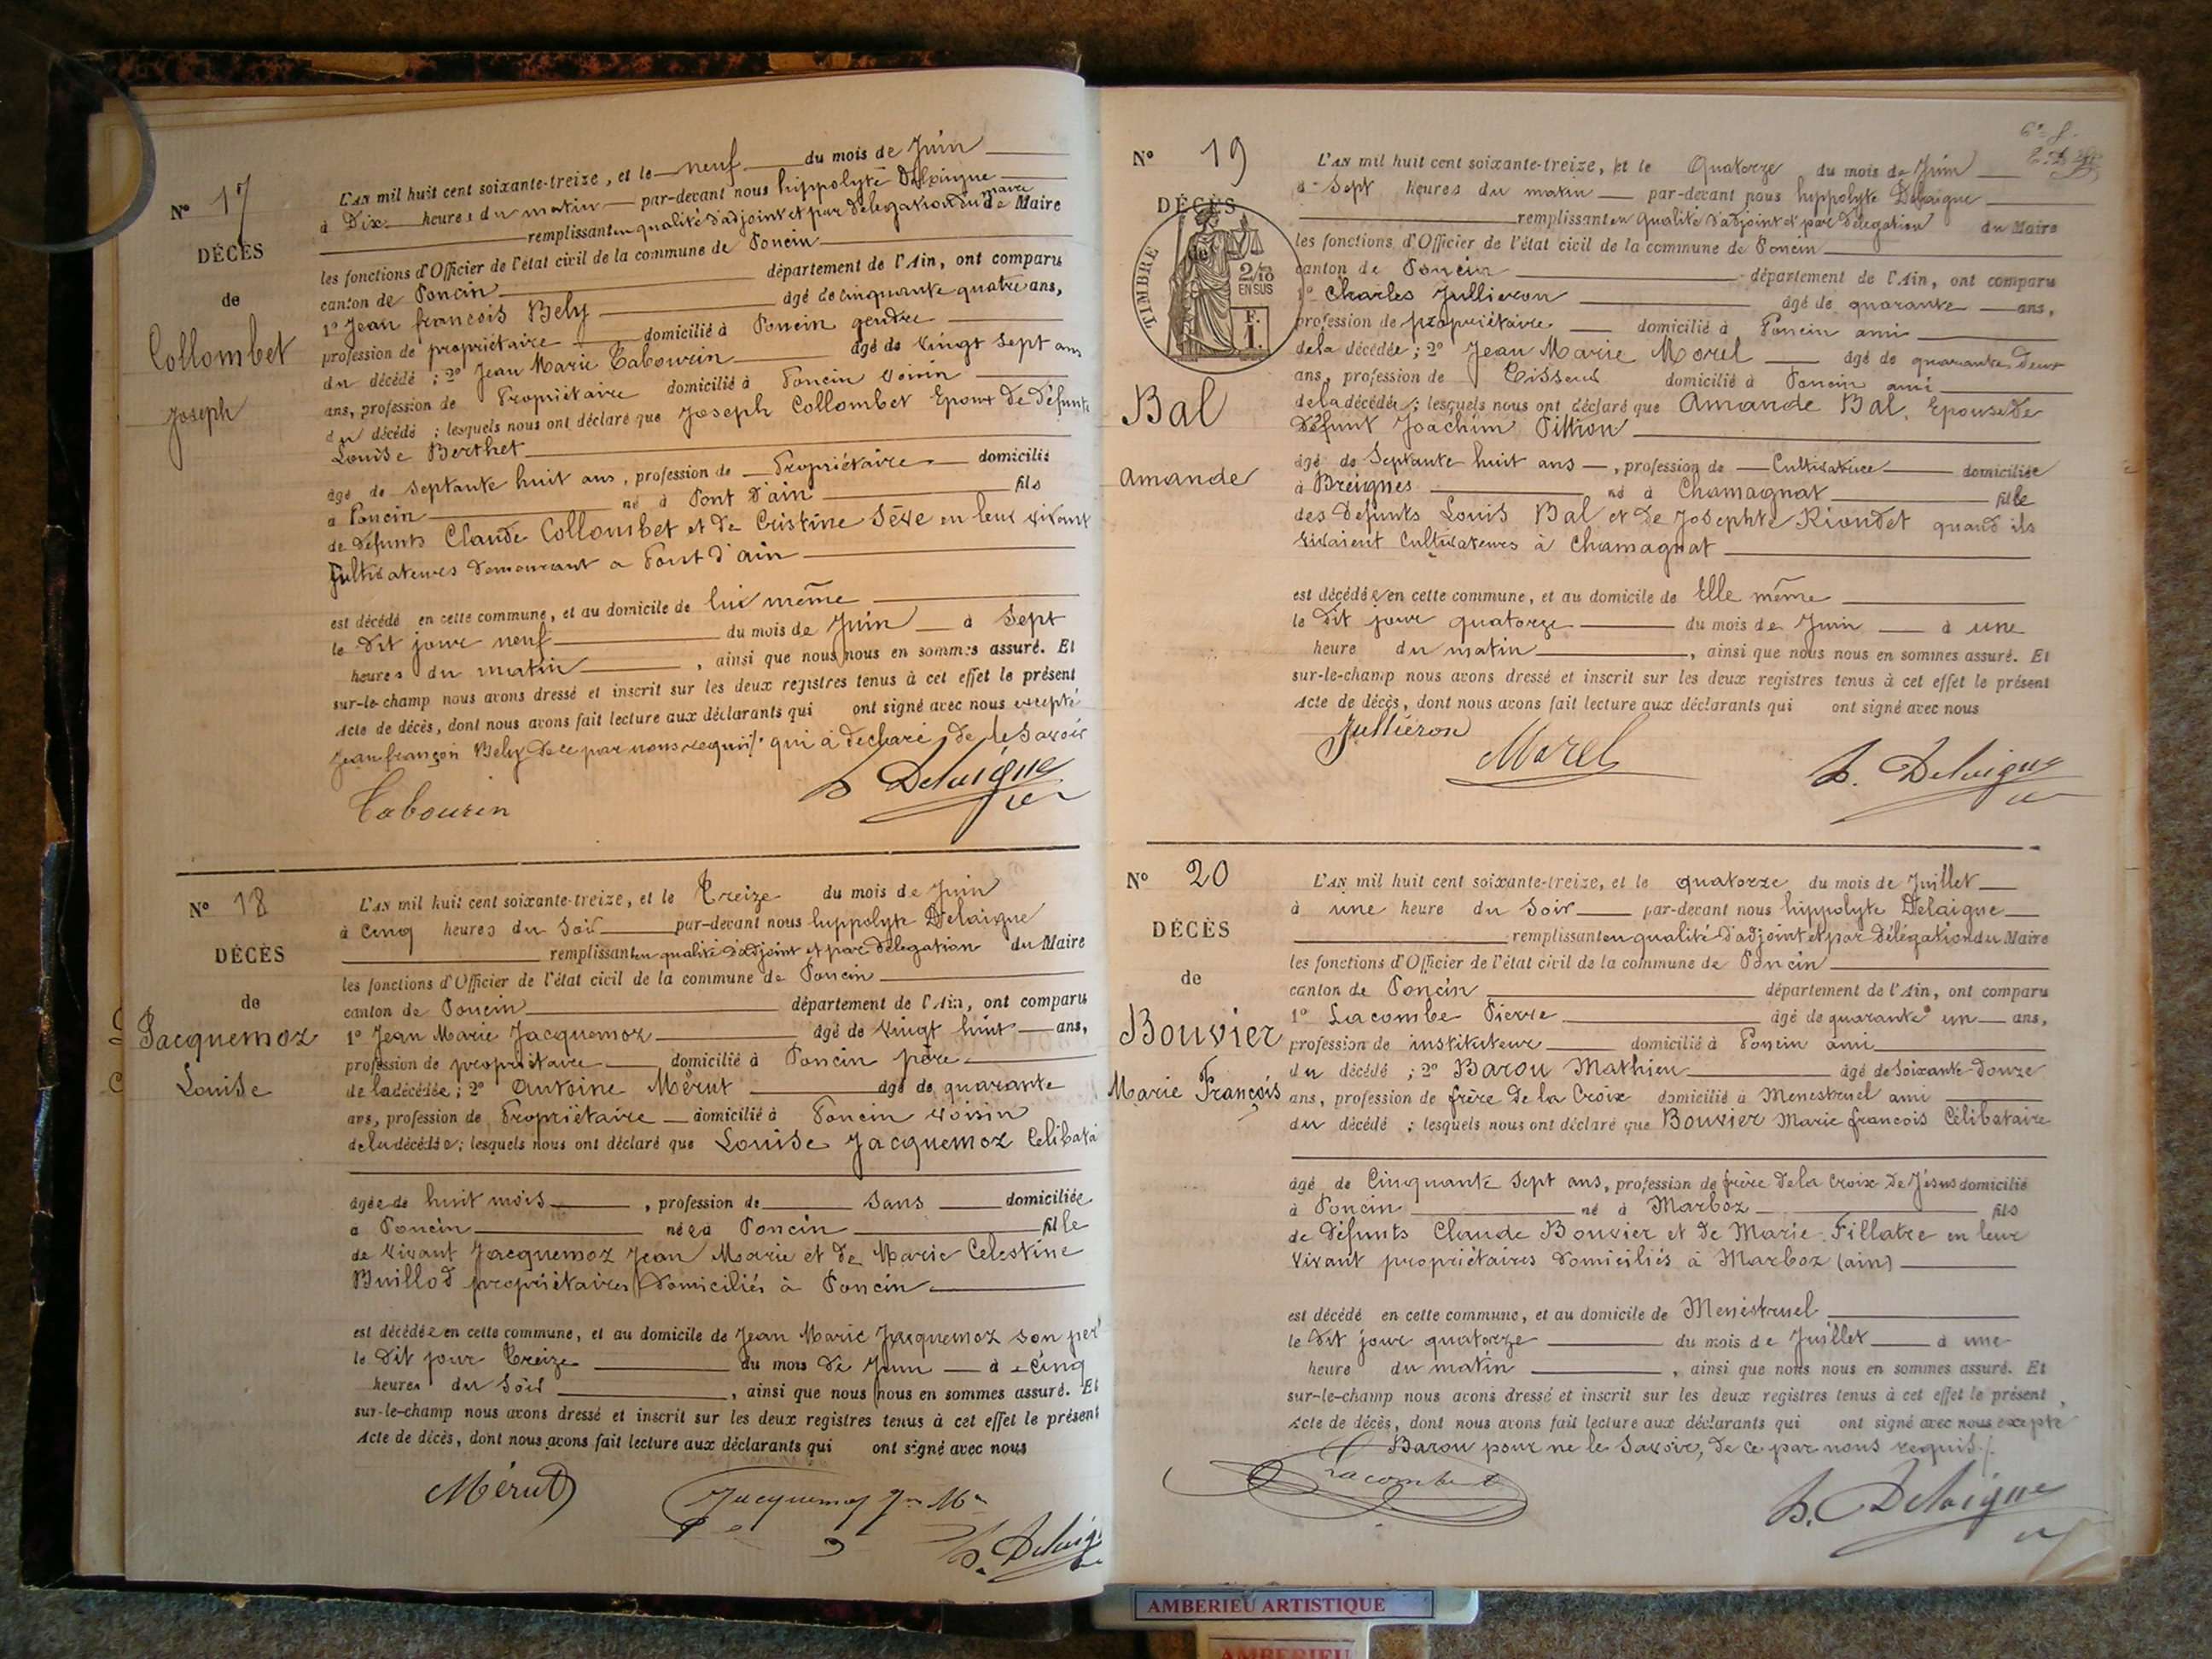 N° 17
DÉCÈS
de
Collombet
Joseph
L'AN mil huit cent soixante-treize, et le neuf du mois de Juin
à Dix heures du matin par-devant nous hippolyte Delaigue
remplissant en qualité d'adjoint et par délégation du maire de Maire
les fonctions d'Officier de l'état civil de la commune de Poncin
canton de Poncin département de l'Ain, ont comparu
1° Jean francois Bely âgé de cinquante quatre ans,
profession de propriétaire domicilié à Poncin gendre
du décédé ; 2° Jean Marie Tabourin âgé de vingt sept ans
ans, profession de Propriétaire domicilié à Poncin voisin
du décédé ; lesquels nous ont déclaré que Joseph Collombet Epoux de Défunte
Louise Berthet
âgé de Septante huit ans, profession de Propriétaire domicilié
à Poncin né à Pont d'ain fils
de Défunts Claude Collombet et de Cristine Sève en leur vivant
Cultivateurs demeurant a Pont d'ain
est décédé en cette commune, et au domicile de lui même
le dit jour neuf du mois de Juin à Sept
heures du matin, ainsi que nous nous en sommes assuré. Et
sur-le-champ nous avons dressé et inscrit sur les deux registres tenus à cet effet le présent
Acte de décès, dont nous avons fait lecture aux déclarants qui ont signé avec nous excepté
Jean françois Bely de ce par nous requis qui à déclaré de le Savoir
Tabourin
h Delaigue
N° 18
DÉCÈS
de
Jacquemoz
Louise
L'AN mil huit cent soixante-treize, et le Treize du mois de Juin
à Cinq heures du Soir par-devant nous hyppolyte Delaigue
remplissant en qualité d'adjoint et par délegation du Maire
les fonctions d'Officier de l'état civil de la commune de Poncin
canton de Poncin département de l'Ain, ont comparu
1° Jean Marie Jacquemoz âgé de Vingt huit ans,
profession de propriétaire domicilié à Poncin père
de la décédée ; 2° Antoine Mérut âgé de quarante
ans, profession de Propriétaire domicilié à Poncin voisin
de la décédée ; lesquels nous ont déclaré que Louise Jacquemoz Celibata
âgée de huit mois, profession de Sans domiciliée
a Poncin née à Poncin fille
de Vivant Jacquemoz Jean Marie et de Marie Celestine
Buillod propriétaires Domiciliés à Poncin
est décédée en cette commune, et au domicile de Jean Marie Jacquemoz son per
le Dit jour Treize du mois de Juin à Cinq
heures du Soir, ainsi que nous nous en sommes assuré. Et
sur-le-champ nous avons dressé et inscrit sur les deux registres tenus à cet effet le présent
Acte de décès, dont nous avons fait lecture aux déclarants qui ont signé avec nous
Mérut
Jacquemoz Jn Me
h. Delaig
N° 19
DÉCÈS
de
TIMBRE
2/10
EN SUS
F.
1.
Bal
Amande
L'AN mil huit cent soixante-treize, et le Quatorze du mois de Juin
à Sept heures du matin par-devant nous hyppolyte Delaigue
remplissant en qualité d'adjoint et par Délegation du Maire
les fonctions d'Officier de l'état civil de la commune de Poncin
canton de Poncin département de l'Ain, ont comparu
1° Charles Jullieron âgé de quarante ans,
profession de propriétaire domicilié à Poncin ami
de la décédée ; 2° Jean Marie Morel âgé de quarante Deux
ans, profession de Tisseur domicilié à Poncin ami
de la décédée ; lesquels nous ont déclaré que Amande Bal, Epouse de
Défunt Joachim Pittion
âgé de Septante huit ans, profession de Cultivatrice domiciliée
à Breignes né à Chamagnat fille
des Defunts Louis Bal et de Josephte Riondet quand ils
vivaient Cultivateurs à Chamagnat
est décédée en cette commune, et au domicile de Elle même
le Dit jour quatorze du mois de Juin à une
heure du matin, ainsi que nous nous en sommes assuré. Et
sur-le-champ nous avons dressé et inscrit sur les deux registres tenus à cet effet le présent
Acte de décès, dont nous avons fait lecture aux déclarants qui ont signé avec nous
Julliéron
Morel
h. Delaigue
N° 20
DÉCÈS
de
Bouvier
Marie François
L'AN mil huit cent soixante-treize, et le quatorze du mois de Juillet
à une heure du Soir par-devant nous hippolyte Delaigue
remplissant en qualité d'adjoint et par délégation du Maire
les fonctions d'Officier de l'état civil de la commune de Poncin
canton de Poncin département de l'Ain, ont comparu
1° Lacombe Pierre âgé de quarante un ans,
profession de instituteur domicilié à Poncin ami
du décédé ; 2° Barou Mathieu âgé de Soixante Douze
ans, profession de frère de la Croix domicilié à Menestruel ami
du décédé ; lesquels nous ont déclaré que Bouvier Marie francois Célibataire
âgé de Cinquante Sept ans, profession de frère de la Croix de Jésus domicilié
à Poncin né à Marboz fils
de Défunts Claude Bouvier et de Marie Fillatre en leur
Vivant propriétaires Domiciliés à Marboz (ain)
est décédé en cette commune, et au domicile de Menestruel
le Dit jour quatorze du mois de Juillet à une
heure du matin, ainsi que nous nous en sommes assuré. Et
sur-le-champ nous avons dressé et inscrit sur les deux registres tenus à cet effet le présent
Acte de décès, dont nous avons fait lecture aux déclarants qui ont signé avec nous excepté
Barou pour ne le Savoir, de ce par nous requis
Lacombe
h. Delaigue
AMBERIEU ARTISTIQUE
AMBERIEU